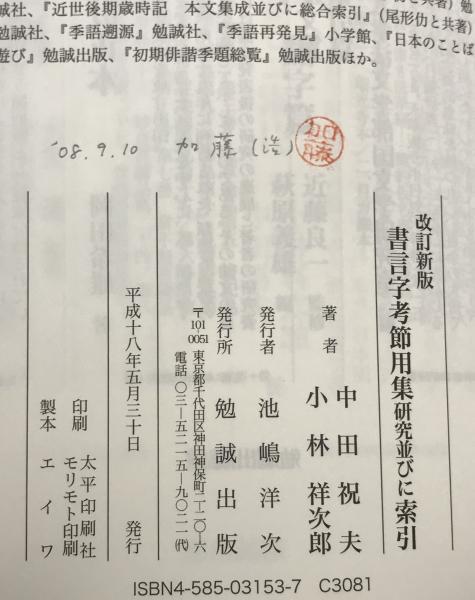 誠社、『近世後期歳時記　本文集成並びに総合索引』（尾形仂と共著）
勉誠社、『季語遡源』勉誠社、『季語再発見』小学館、『日本のことば
遊び』勉誠出版、『初期俳諧季題総覧』勉誠出版ほか。
'08.9.10　加藤（浩）
加藤
改訂新版
書言字考節用集研究並びに索引
著者　中田祝夫
小林祥次郎
発行者　池嶋洋次
発行所　勉誠出版
〒101-0051　東京都千代田区神田神保町二―二〇―六
電話〇三―五二一五―九〇二一（代）
平成十八年五月三十日　発行
印刷　太平印刷社
モリモト印刷
製本　エイワ
ISBN4-585-03153-7　C3081